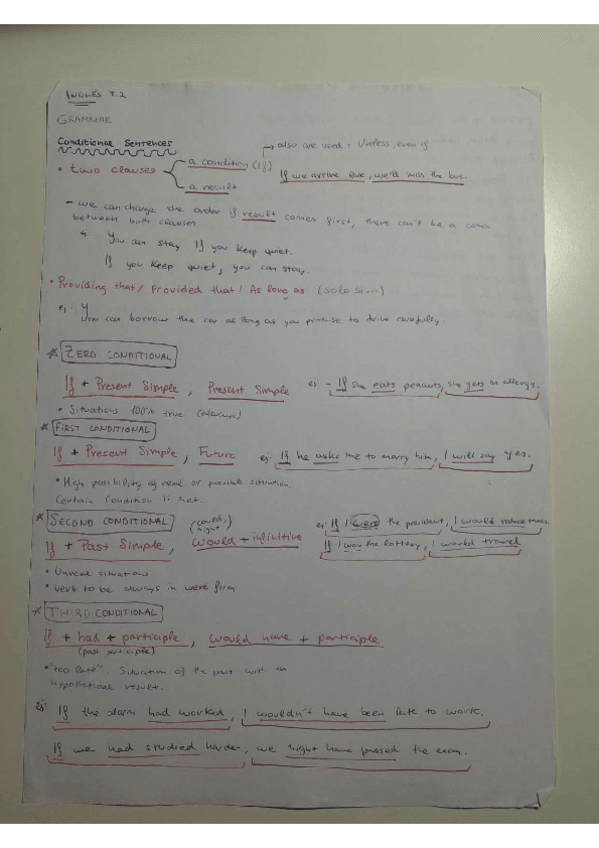 INGLÉS T.1
GRAMMAR
Conditional Sentences
→ also are used: Unless, even if
• two clauses
a condition (if)
a result
If we arrive late, we'll miss the bus.
- we can change the order if result comes first, there can't be a coma
between both clauses.
You can stay If you keep quiet.
If you keep quiet, you can stay.
• Providing that / Provided that / As long as (solo si...)
ej: You can borrow the car as long as you promise to drive carefully.
* ZERO CONDITIONAL
If + Present Simple, Present Simple
ej: - If she eats penauts, she gets an allergy.
• Situations 100% true (always)
* FIRST CONDITIONAL
If + Present Simple, Future
ej: If he asks me to marry him, I will say yes.
• High possibility of real or possible situation.
Certain condition is met.
* SECOND CONDITIONAL
(could, might)
If + Past Simple, would + infinitive
ej: If I were the president, I would reduce taxes.
If I won the lottery, I would travel
• Unreal situations
• verb to be always in were form
* THIRD CONDITIONAL
If + had + participle, would have + participle
(past participle)
• "too late". Situation of the past with an
hypothetical result.
ej: If the alarm had worked, I wouldn't have been late to work.
If we had studied harder, we might have passed the exam.